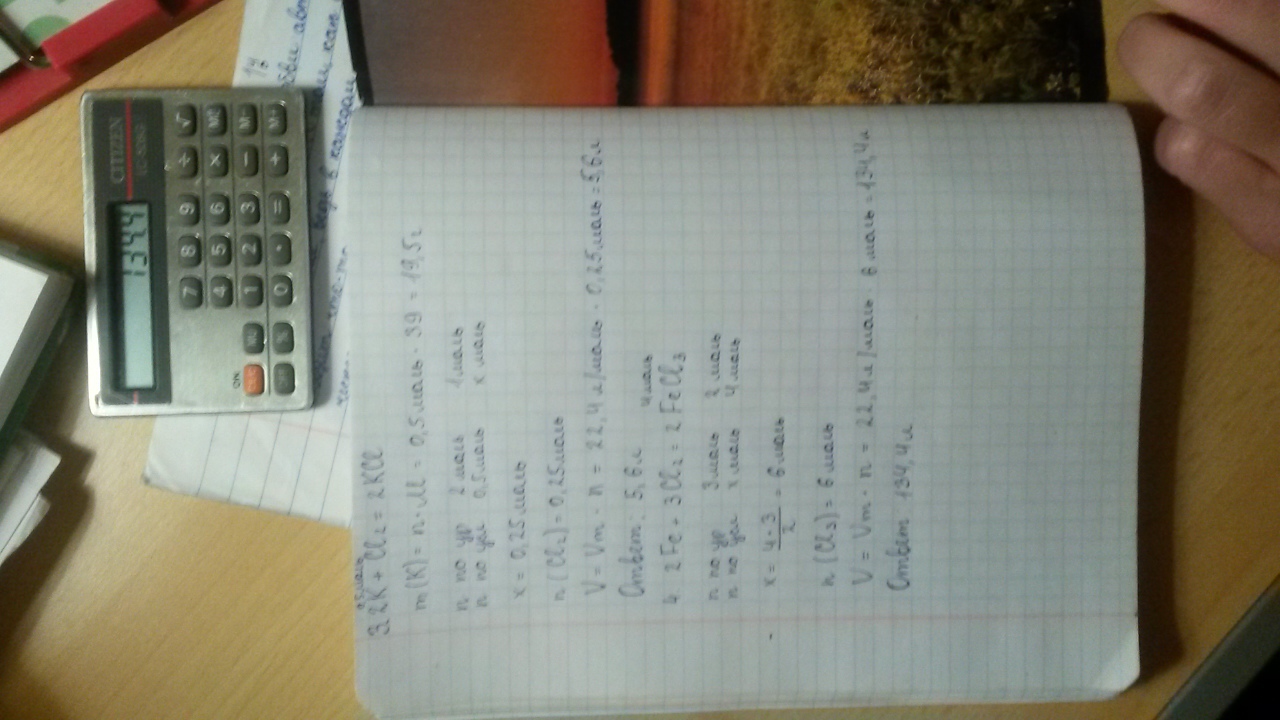 0,5 моль
3. 2K + Cl2 = 2KCl
m(K) = n · M = 0,5 моль · 39 = 19,5 г
n по ур 2 моль 1 моль
n по усл 0,5 моль x моль
x = 0,25 моль
n(Cl2) = 0,25 моль
V = Vm · n = 22,4 л/моль · 0,25 моль = 5,6 л
Ответ: 5,6 л
4 моль
4 2Fe + 3Cl2 = 2FeCl3
n по ур 3 моль 2 моль
n по усл x моль 4 моль
x = 4·3/2 = 6 моль
n(Cl3) = 6 моль
V = Vm · n = 22,4 л/моль · 6 моль = 134,4 л
Ответ 134,4 л
CITIZEN
134.4
7 8 9 ÷ √
4 5 6 ×
1 2 3 − M-
0 · = + M+
ON